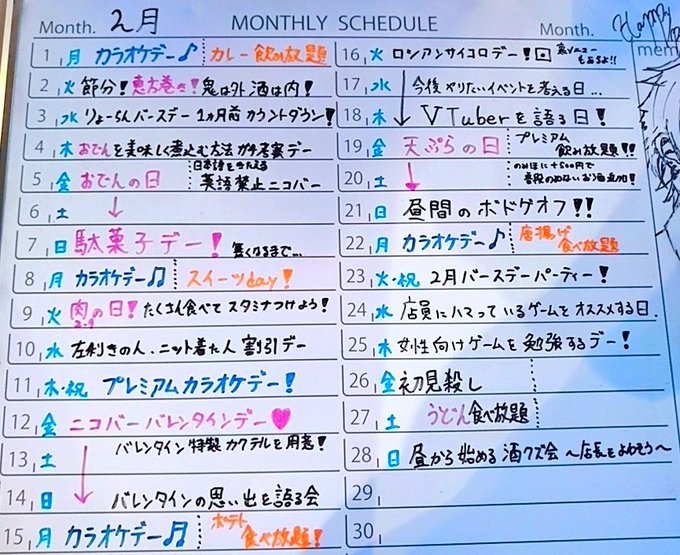 Month. 2月 MONTHLY SCHEDULE Month.
1 月 カラオケデー♪ カレー飲み放題
2 火 節分!恵方巻き!鬼は外酒は内!
3 水 りょーちんバースデー1ヵ月前カウントダウン!
4 木 おでんを美味しく煮込む方法ガチ考案デー
5 金 おでんの日 日本語をきたえる 英語禁止ニコバー
6 土
7 日 駄菓子デー! 無くなるまで…
8 月 カラオケデー♫ スイーツday!
9 火 肉の日!たくさん食べてスタミナつけよう!
2.9
10 水 左利きの人、ニット着た人 割引デー
11 木・祝 プレミアムカラオケデー!
12 金 ニコバーバレンタインデー♥
13 土 バレンタイン特製カクテルを用意!
14 日 バレンタインの思い出を語る会
15 月 カラオケデー♬ ポテト食べ放題!
16 火 ロシアンサイコロデー! 裏メニューもあるよ!!
17 水 今後やりたいイベントを考える日…
18 木 VTuberを語る日!
19 金 天ぷらの日 プレミアム飲み放題!!
20 土 のみほに+500円で
普段のめないお酒追加!
21 日 昼間のボドゲオフ!!
22 月 カラオケデー♪ 唐揚げ食べ放題
23 火・祝 2月バースデーパーティー!
24 水 店員にハマっているゲームをオススメする日.
25 木 女性向けゲームを勉強するデー!
26 金 初見殺し
27 土 うどん食べ放題
28 日 昼から始める酒クズ会 〜店長をよわそう〜
29
30
Happy
mem